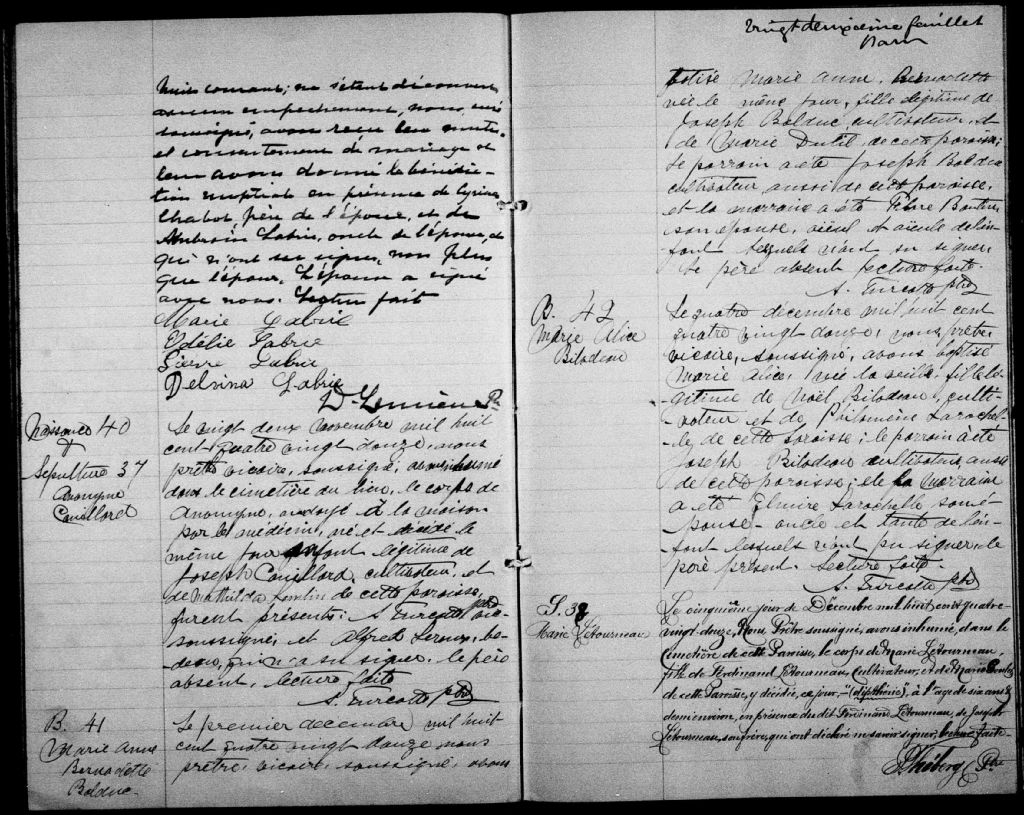 huit courant; ne s'étant découvert
aucun empêchement, nous, sous
soussigné, avons reçu leur mutuel
et consentement de mariage et
leur avons donné la bénédic-
tion nuptiale en présence de
Chabot père de l'épouse, et de
Ambroise Labrie, oncle de l'épouse,
qui n'ont su signer, non plus
que l'époux, L'épouse a signé
avec nous. Lecture fait
Marie Labrie
Odélie Labrie
Pierre Labrie
Delvina Labrie
D. Lemieux Ptr
Naissance 40
&
Sepulture 37
Anonyme
Couillard
Le vingt deux Novembre mil huit
cent quatre vingt douze, nous
prêtre vicaire, soussigné, avons inhumé
dans le cimetière du lieu, le corps de
Anonyme, ondoyé à la maison
par le médecin, né et décédé le
même jour enfant légitime de
Joseph Couillard, cultivateur, et
de Mathilda de cette paroisse,
furent présents: A Turcotte ptre
soussigné, et Alfred Leroux, be-
deau, qui n'a su signer. le père
absent, lecture faite
A. Turcotte ptre
B. 41
Marie Anne
Bernadette
Bolduc
Le premier decembre mil huit
cent quatre vingt douze nous
prêtre, vicaire, soussigné, avons
Vingt deuxième feuillet
baptisé Marie Anne Bernadette
née le même jour, fille légitime de
Joseph Bolduc, cultivateur, et
de Marie Dutil, de cette paroisse;
le parrain a été Joseph Bolduc
cultivateur aussi de cette paroisse,
et la marraine a été
son épouse, aïeul et aïeule de l'en-
fant lesquels n'ont su signer.
Le père absent lecture faite.
A. Turcotte ptre
B. 42
Marie Alice
Bilodeau
Le quatre décembre mil huit cent
quatre vingt douze, nous prêtre
vicaire, soussigné, avons baptisé
Marie Alice, née la veille, fille lé-
gitime de Noël Bilodeau, culti-
vateur et de Philomène Larochel-
le, de cette paroisse; le parrain a été
Joseph Bilodeau cultivateur, aussi
de cette paroisse; et la marraine
a été Elmire Larochelle son é-
pouse - oncle et tante de l'en-
fant lesquels n'ont pu signer, le
père présent. Lecture faite.
A. Turcotte ptre
S. 38
Marie Létourneau
Le cinquième jour de Décembre mil huit cent quatre-
vingt-douze, Nous Prêtre soussigné, avons inhumé, dans le
Cimetière de cette Paroisse, le corps de Marie Létourneau,
fille de Ferdinand Létourneau, Cultivateur, et de Marie
de cette Paroisse, y décédée, ce jour, - "(diphtérie)", à l'age de six ans &
demi environ, en présence du dit Ferdinand Létourneau, de Joseph
Létourneau, son frère, qui ont déclaré ne savoir signer, lecture faite -
Théberge Ptre